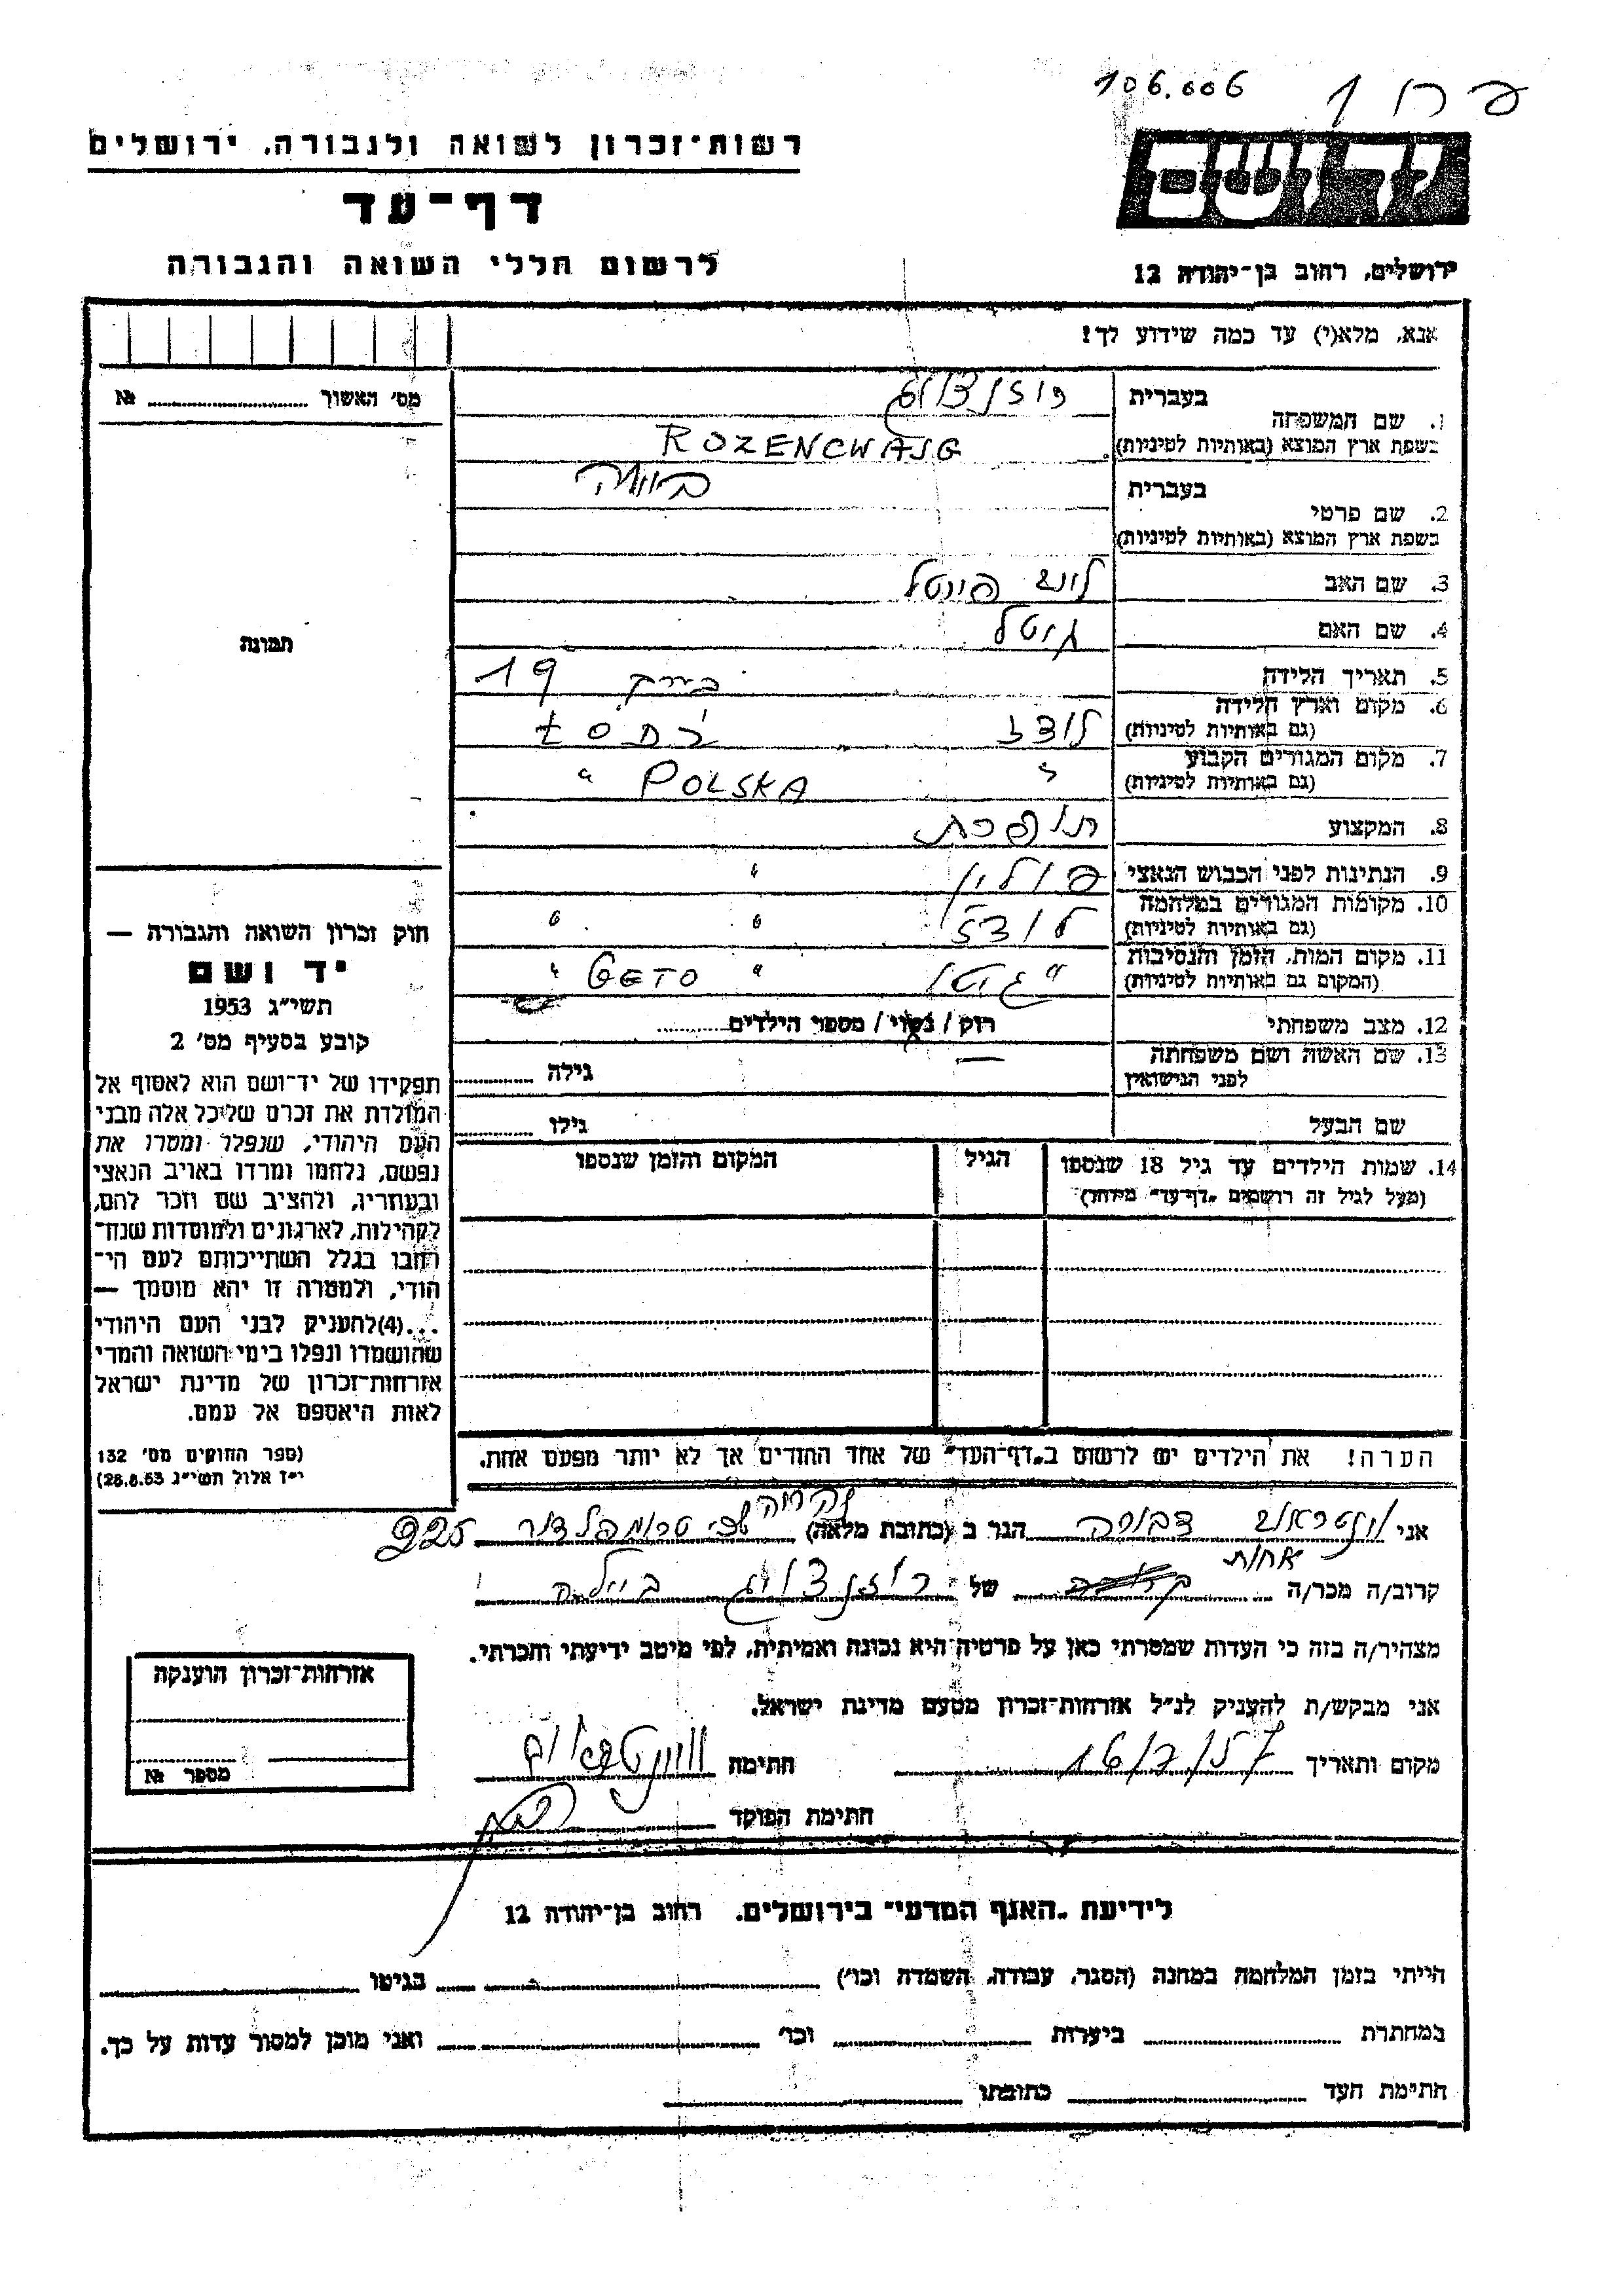 106.006
רשות-זכרון לשואה ולגבורה, ירושלים
דף-עד
לרשום חללי השואה והגבורה
ירושלים, רחוב בן-יהודה 12
אנא, מלא(י) עד כמה שידוע לך!
מס' האשוך № 
בעברית
1. שם המשפחה
בשפת ארץ המוצא (באותיות לטיניות) ROZENCWAJG
בעברית
2. שם פרטי
בשפת ארץ המוצא (באותיות לטיניות)
3. שם האב
4. שם האם גיטל
5. תאריך הלידה 19
6. מקום וארץ הלידה לודז
(גם באותיות לטיניות)
7. מקום המגורים הקבוע
(גם באותיות לטיניות) " POLSKA "
8. המקצוע תופרת
9. הנתינות לפני הכבוש הנאצי פולין "
10. מקומות המגורים במלחמה
(גם באותיות לטיניות) לודz " "
11. מקום המות, הזמן והנסיבות
(המקום גם באותיות לטיניות) "גיטו " GETO "
12. מצב משפחתי רוק / נשוי / מספר הילדים
13. שם האשה ושם משפחתה
לפני הנישואין גילה
שם הבעל גילו
14. שמות הילדים עד גיל 18 שנספו
(מעל לגיל זה רושמים „דף-עד" מיוחד)
הגיל
המקום והזמן שנספו
הערה! את הילדים יש לרשום ב„דף-העד" של אחד ההורים אך לא יותר מפעם אחת.
תמונה
חוק זכרון השואה והגבורה —
יד ושם
תשי"ג 1953
קובע בסעיף מס' 2
תפקידו של יד-ושם הוא לאסוף אל
המולדת את זכרם של כל אלה מבני
העם היהודי, שנפלו ומסרו את
נפשם, נלחמו ומרדו באויב הנאצי
ובעוזריו, ולהציב שם וזכר להם,
לקהילות, לארגונים ולמוסדות שנח-
רבו בגלל השתייכותם לעם הי-
הודי, ולמטרה זו יהא מוסמך —
...(4)להעניק לבני העם היהודי
שהושמדו ונפלו בימי השואה והמרי
אזרחות-זכרון של מדינת ישראל
לאות היאספם אל עמם.
(ספר החוקים מס' 132
י"ז אלול תשי"ג 28.8.53)
אני דבורה הגר ב (כתובת מלאה) 225
אחות
קרוב/ה מכר/ה של רוזנצויג ביילה
מצהיר/ה בזה כי העדות שמסרתי כאן על פרטיה היא נכונה ואמיתית, לפי מיטב ידיעתי והכרתי.
אני מבקש/ת להעניק לנ"ל אזרחות-זכרון מטעם מדינת ישראל.
מקום ותאריך 16/7/57 חתימה
חתימת הפוקד
אזרחות-זכרון הוענקה
מספר №
לידיעת „האגף המדעי" בירושלים. רחוב בן-יהודה 12
הייתי בזמן המלחמה במחנה (הסגר, עבודה, השמדה וכו') בגיטו
במחתרת ביערות וכו' ואני מוכן למסור עדות על כך.
חתימת העד כתובתו